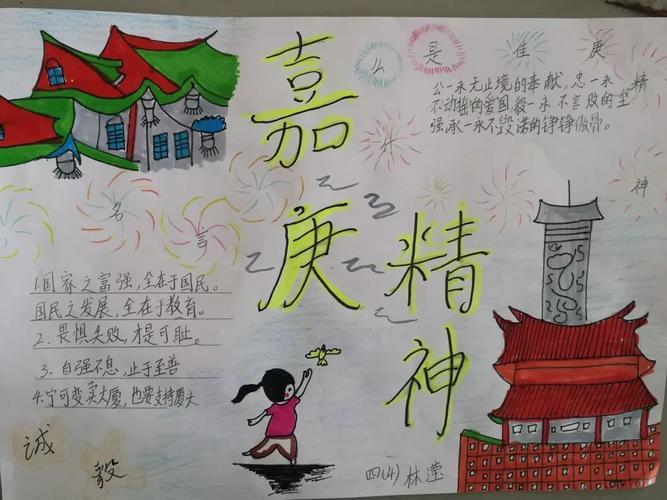 嘉庚精神
什么是佳庚精神
公一永无止境的奉献，忠一永
不动摇的爱国毅一永不言败的坚
强,承一永不毁诺的铮铮傲骨。
名言
1.国家之富强，全在于国民。
国民之发展，全在于教育。
2.畏惧失败，才是可耻。
3、自强不息，止于至善
4.宁可变卖大厦，也要支持厦大
诚毅
四(4)林滢